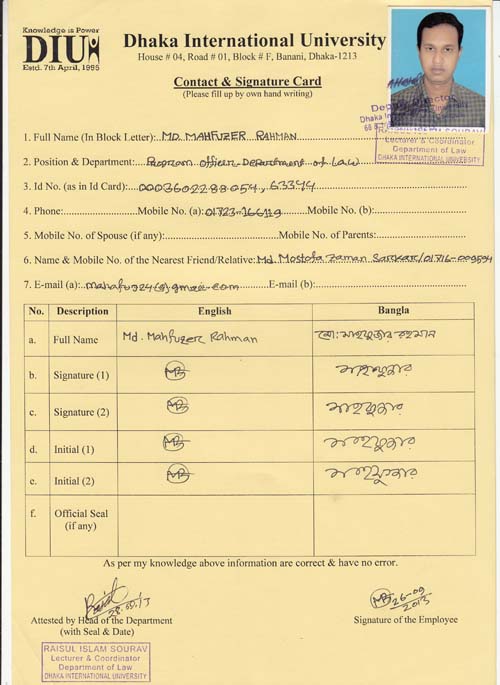 Knowledge is Power
DIU
Estd. 7th April, 1995
Dhaka International University
House # 04, Road # 01, Block # F, Banani, Dhaka-1213
Contact & Signature Card
(Please fill up by own hand writing)
Lecturer & Coordinator
Department of Law
DHAKA INTERNATIONAL UNIVERSITY
1. Full Name (In Block Letter): MD. MAHFUZER RAHMAN
2. Position & Department: Program Officer-Department of Law
3. Id No. (as in Id Card): 0003602288054, 63344
4. Phone: Mobile No. (a): Mobile No. (b):
5. Mobile No. of Spouse (if any): Mobile No. of Parents:
6. Name & Mobile No. of the Nearest Friend/Relative: Md. Mostofa Zaman Sarkar/01716-009594
7. E-mail (a): E-mail (b):
No. Description English Bangla
a. Full Name Md. Mahfuzer Rahman মো: মাহফুজার রহমান
b. Signature (1) মাহফুজার
c. Signature (2) মাহফুজার
d. Initial (1) মাহফুজার
e. Initial (2) মাহফুজার
f. Official Seal
(if any)
As per my knowledge above information are correct & have no error.
26-09
2013
Attested by Head of the Department Signature of the Employee
(with Seal & Date)
RAISUL ISLAM SOURAV
Lecturer & Coordinator
Department of Law
DHAKA INTERNATIONAL UNIVERSITY